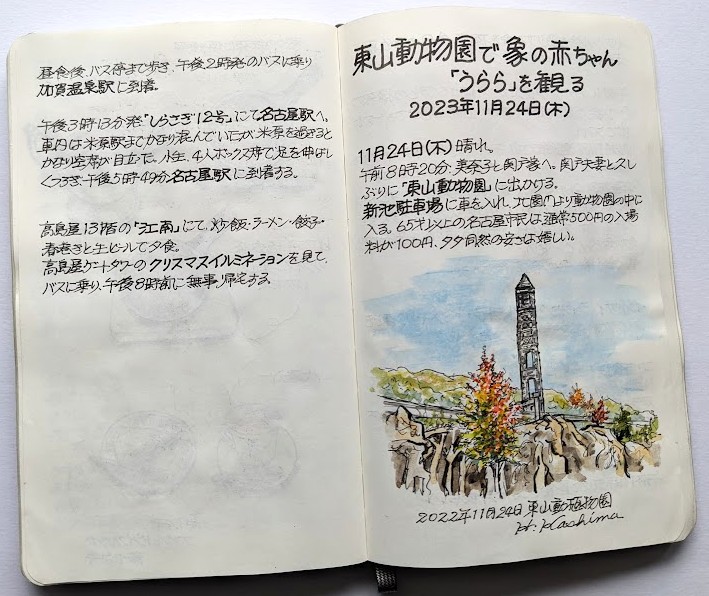 昼食後、バス停まで歩き、午後2時発のバスに乗り
加賀温泉駅に到着。
午後3時13分発「しらさぎ12号」にて名古屋駅へ。
車内は米原駅までかなり混んでいたが米原を過ぎると
かなり空席が目立った。小生、4人ボックス席で足を伸ばし
くつろぎ、午後5時49分、名古屋駅に到着する。
高島屋13階の「江南」にて、炒飯・ラーメン・餃子・
春巻きと生ビールで夕食。
高島屋ゲートタワーのクリスマスイルミネーションを見て、
バスに乗り、午後8時前に無事、帰宅する。
東山動物園で象の赤ちゃん
「うらら」を観る
2023年11月24日(木)
11月24日(木) 晴れ。
午前8時20分、美奈子と関戸家へ。関戸夫妻と久し
ぶりに「東山動物園」に出かける。
新池駐車場に車を入れ、北園門より動物園の中に
入る。65才以上の名古屋市民は通常500円の入場
料が100円、タダ同然の安さは嬉しい。
2022年11月24日 東山動植物園
H. Kashima